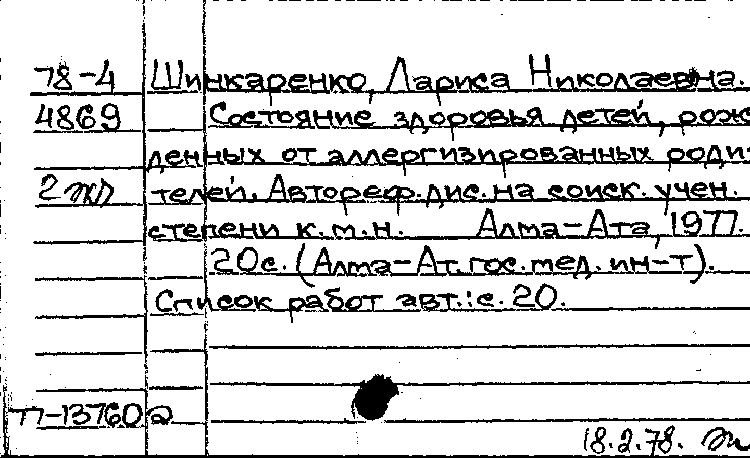 78-4 Шинкаренко, Лариса Николаевна.
4869 Состояние здоровья детей, рож
денных от аллергизированных роди
2 жл телей. Автореф.дис.на соиск.учен.
степени к.м.н. Алма-Ата, 1977.
20с. (Алма-Ат.гос.мед.ин-т).
Список работ авт.:с. 20.
П-13760а
18.2.78.